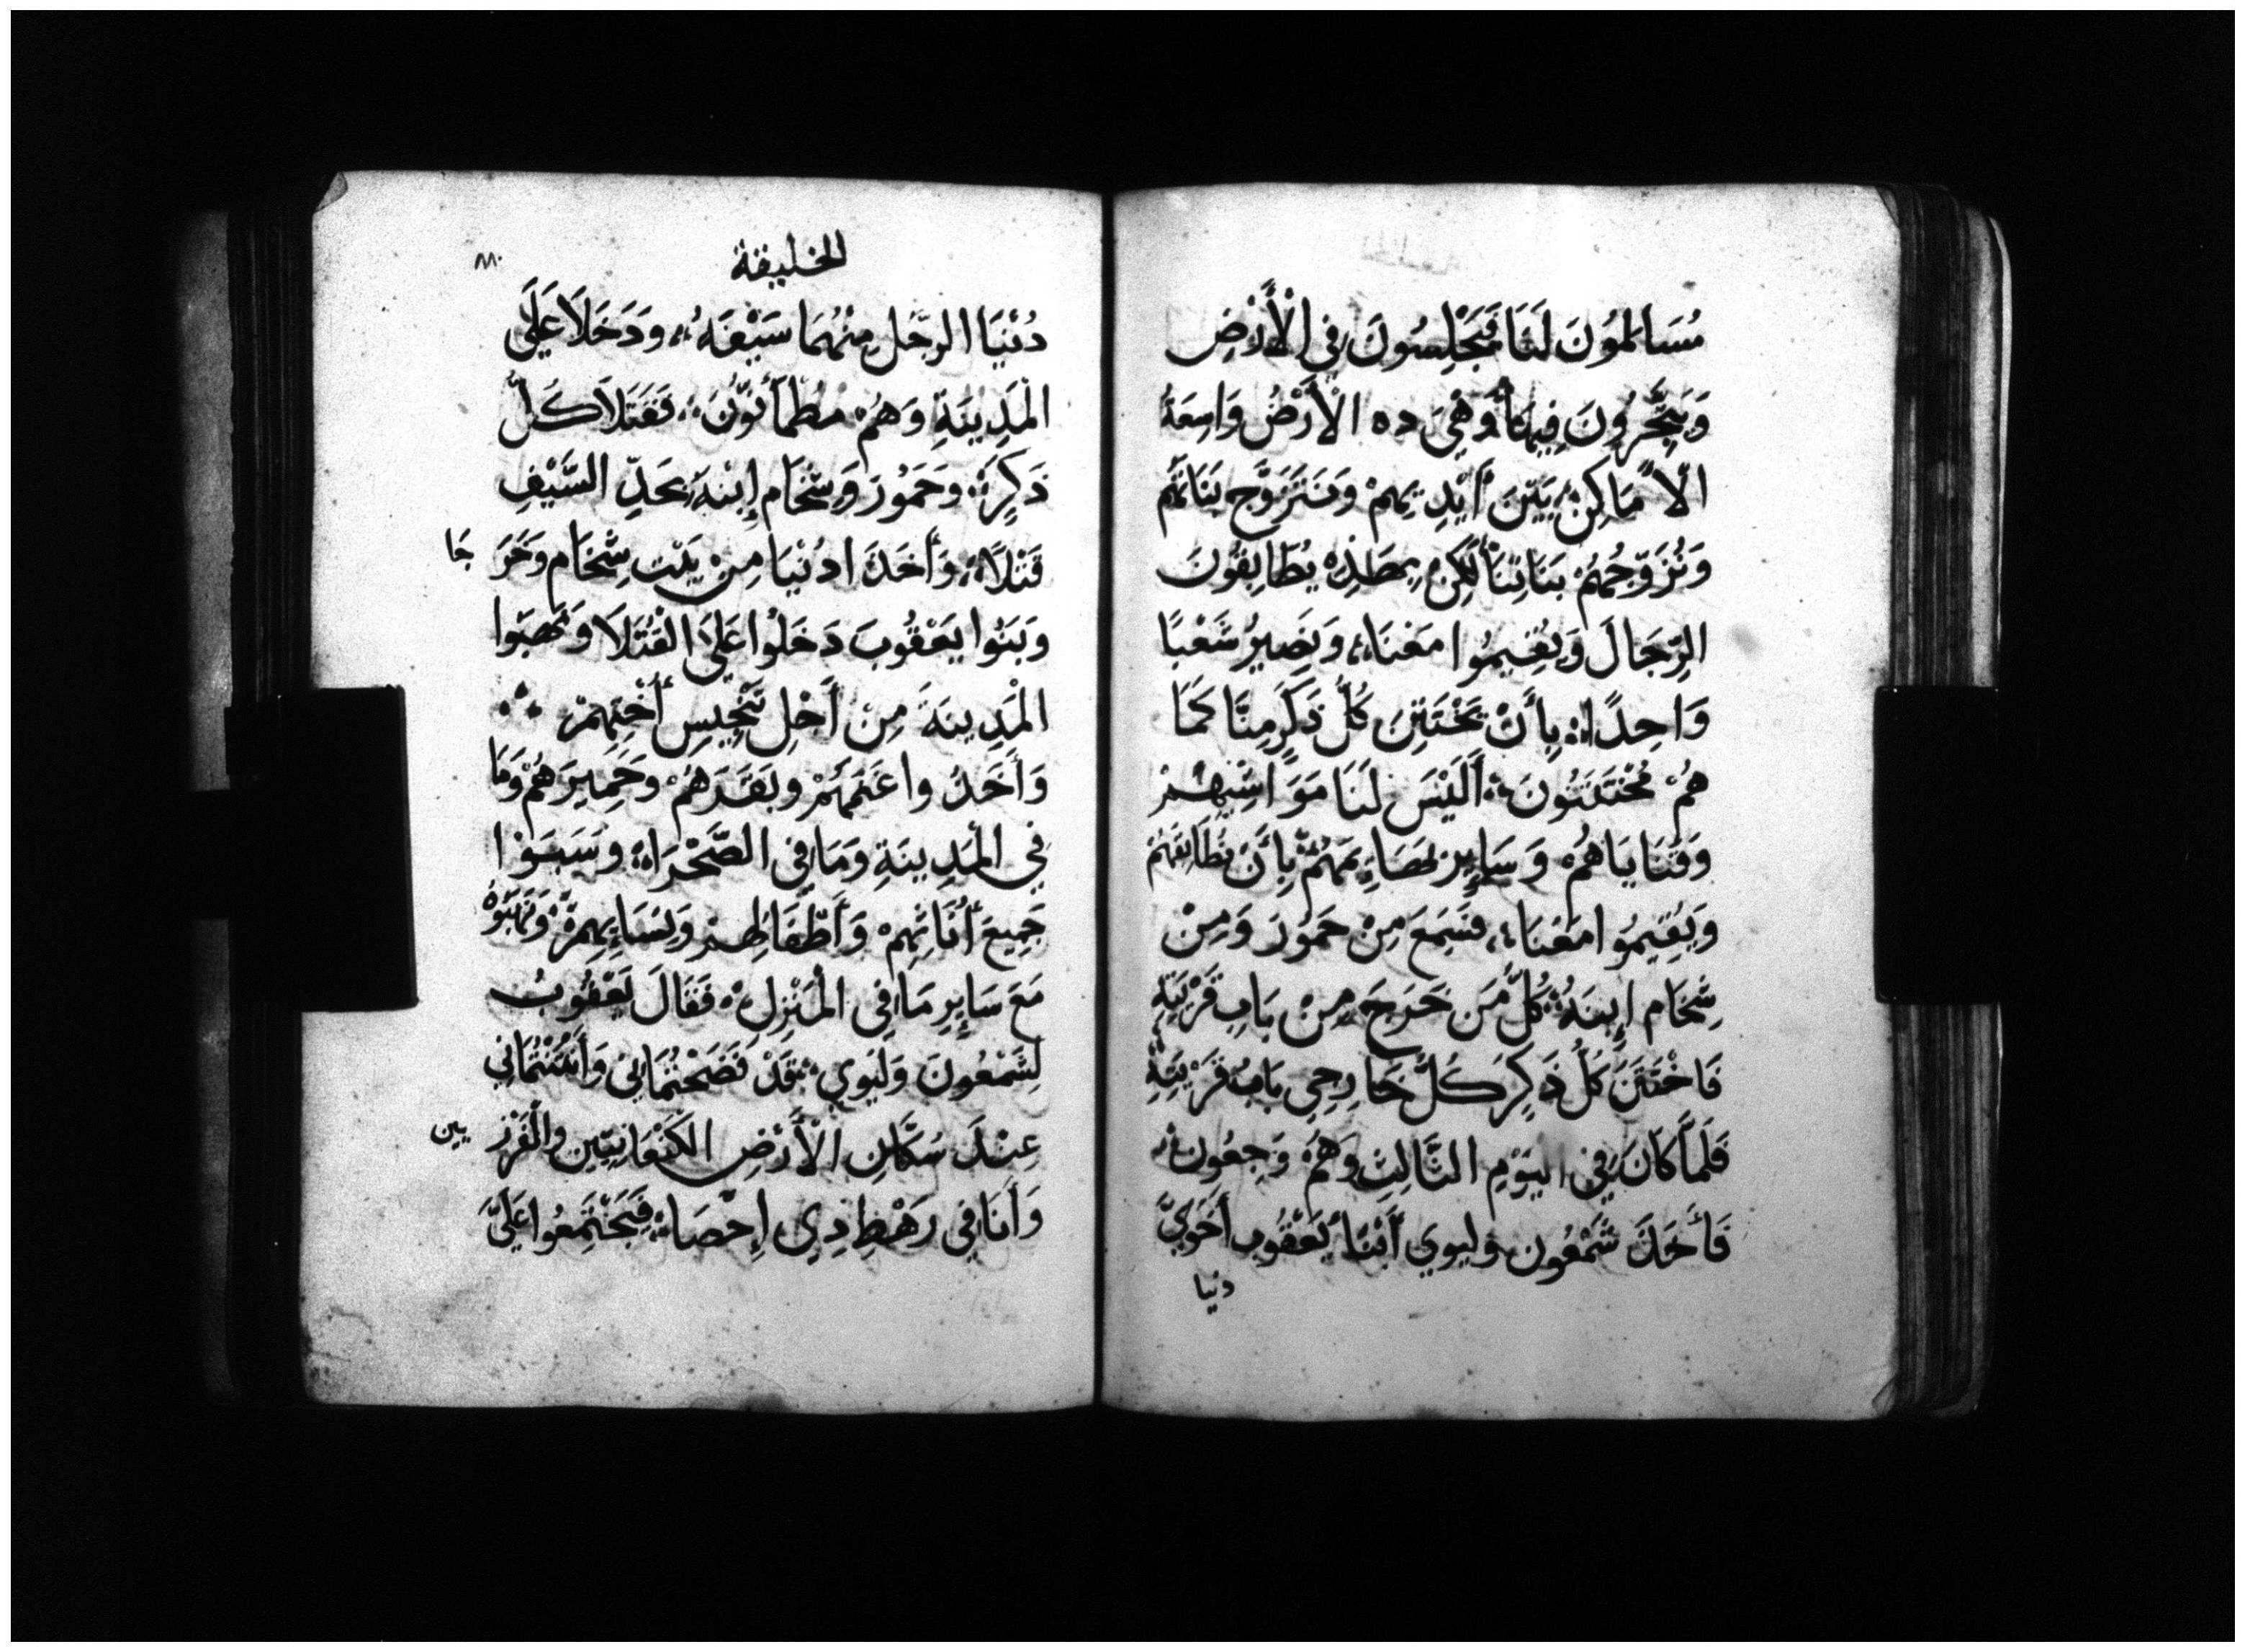 مُسَالِمُونَ لَنَا فَيَجْلِسُونَ فِي الْأَرْضِ
وَيَتَّجِرُونَ فِيهَا وَهِيَ ده الْأَرْضُ وَاسِعَةُ
الْأَمَاكِنْ بَيْنَ أَيْدِيهِمْ وَنَتَزَوَّج بَنَاتَهُم
وَنُزَوِّجُهُمْ بَنَاتِنَا لَكِنْ بِهَذِهْ يُطَابِقُونَ
الرِّجَالَ وَيُقِيمُوا مَعْنَا، وَنَصِيرُ شَعْبًا
وَاحِدًا بِأَنْ يَخْتَتِنَ كُلُّ ذَكَرٍ مِنَّا كَمَا
هُمْ مُخْتَتَنُونَ أَلَيْسَ لَنَا مَوَاشِيهُمْ
وَقَنَايَاهُمْ وَسَايِر بَهَايِمَهُمْ بِأَنْ نُطَابِقَهُمْ
وَيُقِيمُوا مَعْنَا، فَسَمِعَ مِنْ حَمُورَ وَمِنْ
شِخَام إِبنَهُ كُلُّ مَن خَرَجَ مِنْ بَابِ قَرْيَتِهِ
فَاخْتَتَنَ كُلُّ ذَكِرَ كَلُّ خَارِجِي بَابْ قَرْيَتِهِ
فَلَمَّا كَانَ فِي الْيَوْمِ الثَّالِثِ وَهُمْ وَجِعُونْ
فَأَخَذَ شَمْعُون وليوي أَبْنَا يَعْقُوب أَخَوَيّ
دنيا
الخليقة
٨٠
دُنْيَا الرجُل مِنْهُمَا سَيْفَهُ، وَدَخَلَا عَلَى
الْمَدِينَةِ وَهُمْ مُطْمَأَنُّونَ فَقَتَلَا كَلّ
ذَكِرَ وحَمُورَ وَشِخَام إِبْنَهُ بِحَدِّ السَّيْفِ
قَتْلًا وَأَخَذَا دُنْيَا مِنْ بَيْت شِخَام وَخَرَجَا
وَبَنُوا يَعْقُوبَ دَخَلُوا عَلَى القُتَلَا وَنَهَبُوا
الْمَدِينَةَ مِنْ أَجْلِ تَنْجِيسِ أُخْتِهِمْ
وَأَخَذُوا غَنَمَهُمْ وبَقَرَهُمْ وَحَمِيرَهُمْ وَمَا
فِي الْمَدِينَةِ وَمَا فِي الصَّحْرَاءْ وسَبَوْا
جَمِيعَ أُنَاثِهِمْ وَأَطْفَالِهِمْ وَنِسَايِهِمْ وَنَهَبُوهْ
مَعَ سَايِر مَا فِي الْمَنْزِلْ فَقَالَ يَعْقُوبُ
لِشَمْعُونَ وَليوي قَدْ فَضَحْتُمَانِي وَأَنْتَنْتُمَانِي
عِنْدَ سُكَّانِ الْأَرْضِ الكَنْعَانِيِّين وَالْفَرْزيين
وَأَنَا فِي رَهْطِ دِي إِحْصَاءْ فَيَجْتَمِعُوا عَلَيَّ